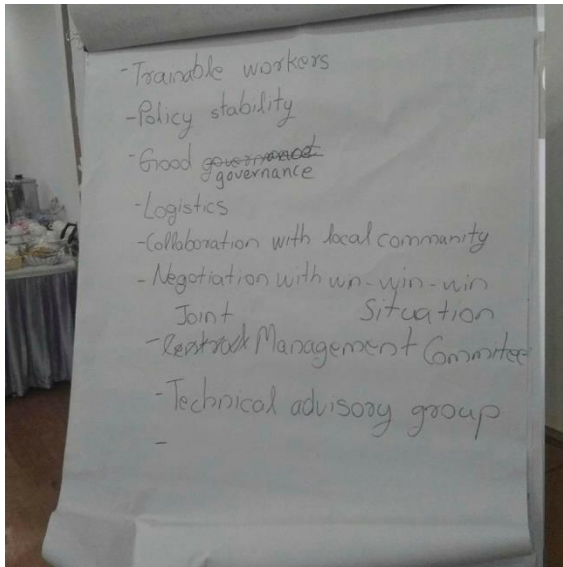 - Trainable workers
- Policy stability
- Good governance
governance
- Logistics
- Collaboration with local community
- Negotiation with wn-win-win
Joint Situation
- Management Commitee
- Technical advisory group
-